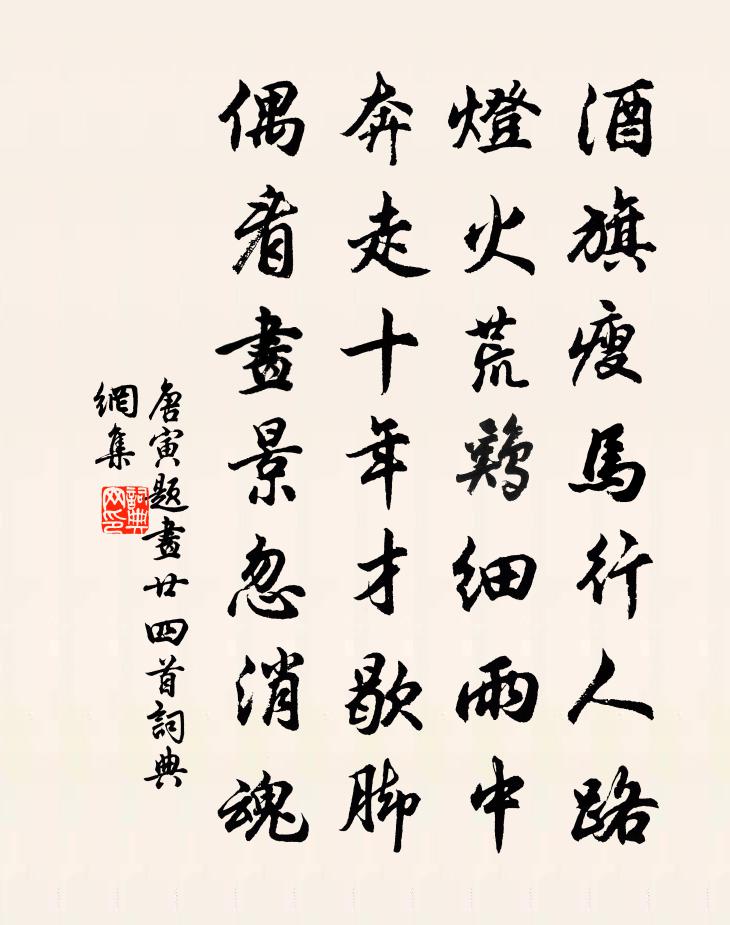 酒旗瘦馬行人路
燈火荒鷄細雨中
奔走十年才歇脚
偶看畫景忽消魂
唐寅題畫廿四首詞典
網集
詞典
网印